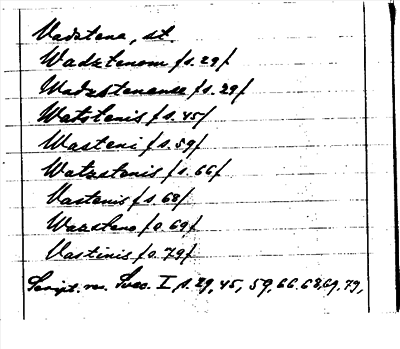 Vadstena, st.
Wadztenom /s. 29/
Wadzstenense /s. 29/
Watstenis /s. 45/
Wasteni /s. 59/
Watzstenis /s. 66/
Vastenis /s. 68/
Wazsteno /s. 69/
Vastinis /s. 79/
Script. rer. Svec. I s. 29, 45, 59, 66, 68, 69, 79,